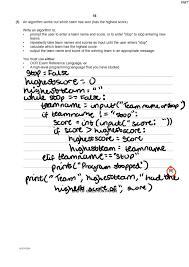 PMT
16
(f) An algorithm works out which team has won (has the highest score).
Write an algorithm to:
• prompt the user to enter a team name and score, or to enter "stop" to stop entering new
teams
• repeatedly take team names and scores as input until the user enters "stop"
• calculate which team has the highest score
• output the team name and score of the winning team in an appropriate message.
You must use either:
• OCR Exam Reference Language, or
• A high-level programming language that you have studied.
Stop = False
highestscore = 0
highestteam = ""
while stop == False:
teamname = input("team name or stop")
if teamname != "stop":
score = int(input("score: "))
if score > highestscore:
highscore = score
highestteam = teamname
elif teamname == "stop"
print("Program stopped")
print("Team", highestteam, "had the
highest score of", score)